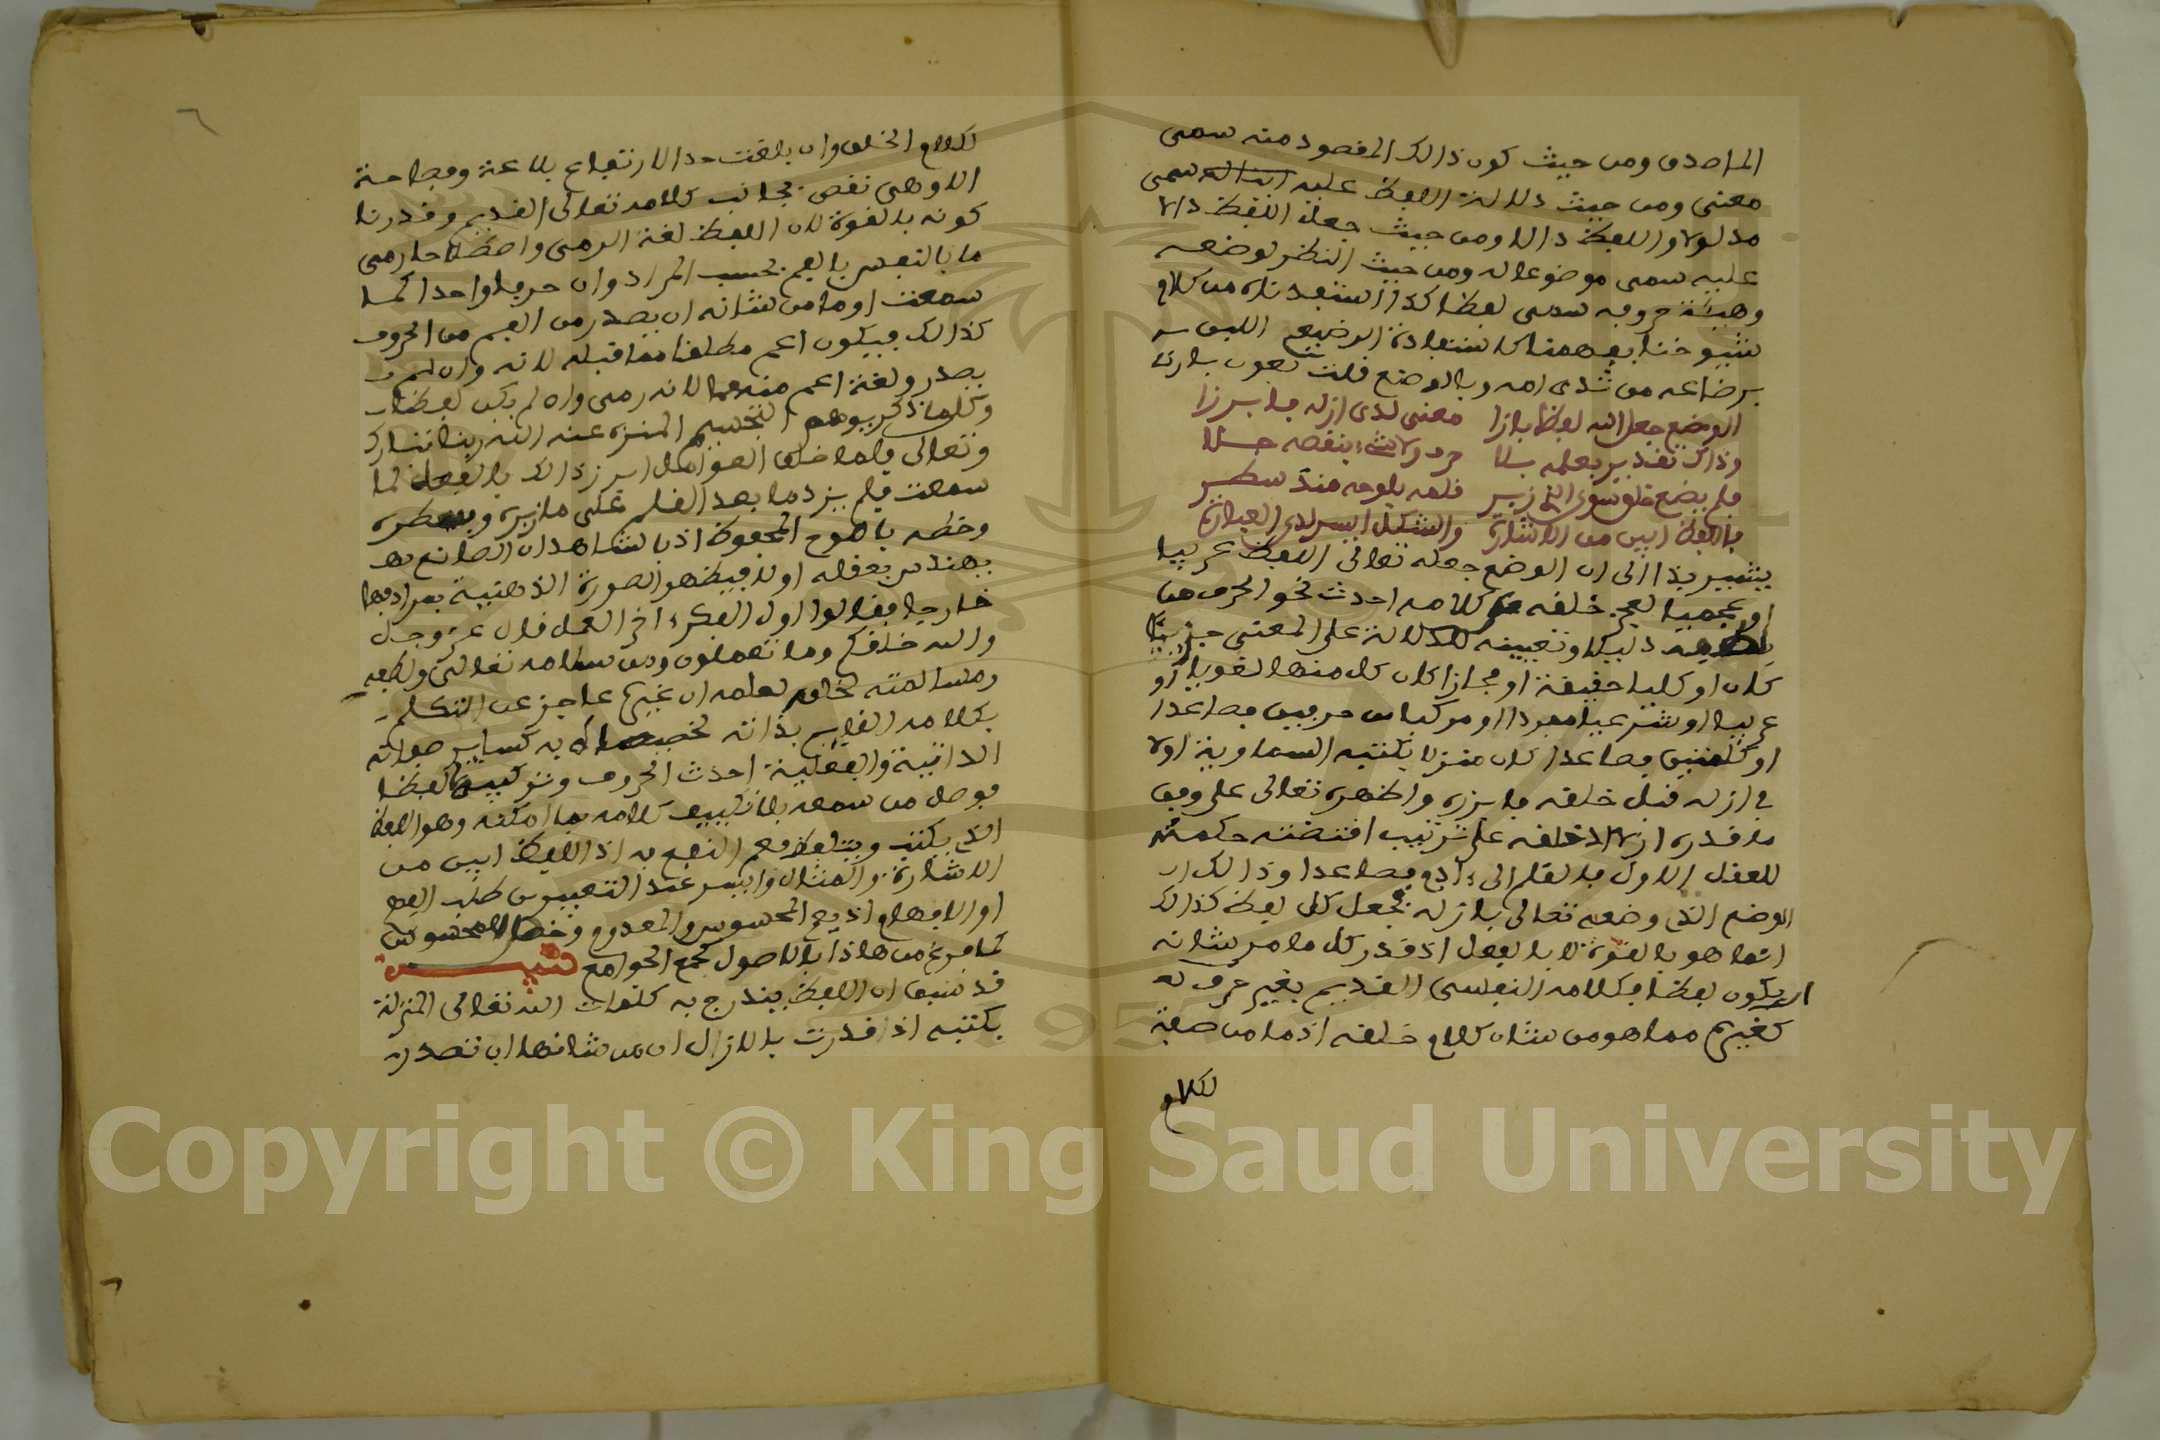 الماصدق ومن حيث كون ذالك المقصود منه سمى
معنى ومن حيث دلالة اللفظ عليه سمى
مدلولا واللفظ دالا ومن حيث جعل اللفظ دالا
عليه سمى موضوعا له ومن حيث النظر لوضعه
وهيئة حروفه سمى لفظا كذا استفدناه من كلام
شيوخنا بفهمنا كاستفادة الرضيع اللبن
برضاعه من ثدى امه وبالوضع قلت
الوضع جعل الله لفظا بازا معنى لدى ازله فابرزا
وذاك تقدير بعلمه بلا حرف ولا شىء بنقصه
فلم يضع خلق سوى الذى زبر قلمه بلوحه منذ سطر
فاللفظ ابين من الاشارة والشكل ايسر لدى العبارة
يشير بذا الى ان الوضع جعله تعالى اللفظ عربيا
او عجميا لعجز خلقه كلامه احدث نحو الحرف من
دليلا وتعيينه للدلالة على المعنى جزئيا
كان او كليا حقيقة او مجازا كان كل منها لغويا او
عربيا او شرعيا مفردا او مركبا من حرفين فصاعدا
او كلمتين فصاعدا كان منزلا بكتبه السماوية اولا
في ازله قبل خلقه فابرزه واظهره تعالى على وفق
ما قدره ازلا لخلقه على ترتيب اقتضته حكمته
للعقل الاول فالقلم الى ءادم فصاعدا وذالك ان
الوضع الذى وضعه تعالى بازله بجعل كل لفظ كذالك
انما هو بالقوة لا بالفعل اذ قدر كل ما من شانه
ان يكون لفظا فكلامه النفسى القديم بغير حرف له
كغيره مما هو من شان كلام خلقه اذ ما من صفة
لكلام
٦
لكلام الخلق وان بلغت حد الارتفاع بلاغة وفصاحة
الا وهى نقص بجانب كلامه تعالى القديم وقدرنا
كونه بالقوة لان اللفظ لغة الرمى واصطلاحا رمى
ما بالنفس بالفم بحسب المراد وان حرفا واحدا كما
سمعت او ما من شانه ان يصدر من الفم من الحروف
كذالك فيكون اعم مطلقا مما قبله لانه وان لم
يصدر ولغة اعم منهما لانه رمى وان لم يكن لفظا
وكلما ذكر يوهم التجسيم المنزه عنه الله ربنا تبارك
وتعالى فلما خلق العوامل ابرز ذالك بالفعل لما
سمعت فلم يزد ما بعد القلم على ما زبره وسطره
وخطه باللوح المحفوظ اذ بالشاهد ان الصانع
يهندس بعقله اولا فيظهر الصورة الذهنية بمرادها
خارجا فقالوا اول الفكر ءاخر العمل قال عز وجل
والله خلقكم وما تعملون ومن سلامه تعالى ولطفه
ومسالمته لخلقه لعلمه ان غيره عاجز عن التكلم
بكلامه القايم بذاته به كساير صفاته
الذاتية والفعلية احدث الحروف وتركيبها لفظا
فوصل من سمعه بلا تكييف كلامه بما امكنه وهو اللفظ
الذى يكتب ويتلفظ فعم النفع به اذ اللفظ ابين من
الاشارة والمثال وايسر عند التعبير من طلب الفهم
او الافهام اذ يعم المحسوس والمعدوم وخص المحسوس
كما فرغ من هاذا بالاصول كجمع الجوامع تنبيه
قد سبق ان اللفظ يندرج به كلمات الله تعالى المنزلة
بكتبه اذ قدرت بالازل ان من شانها ان تصدر
Copyright © King Saud University